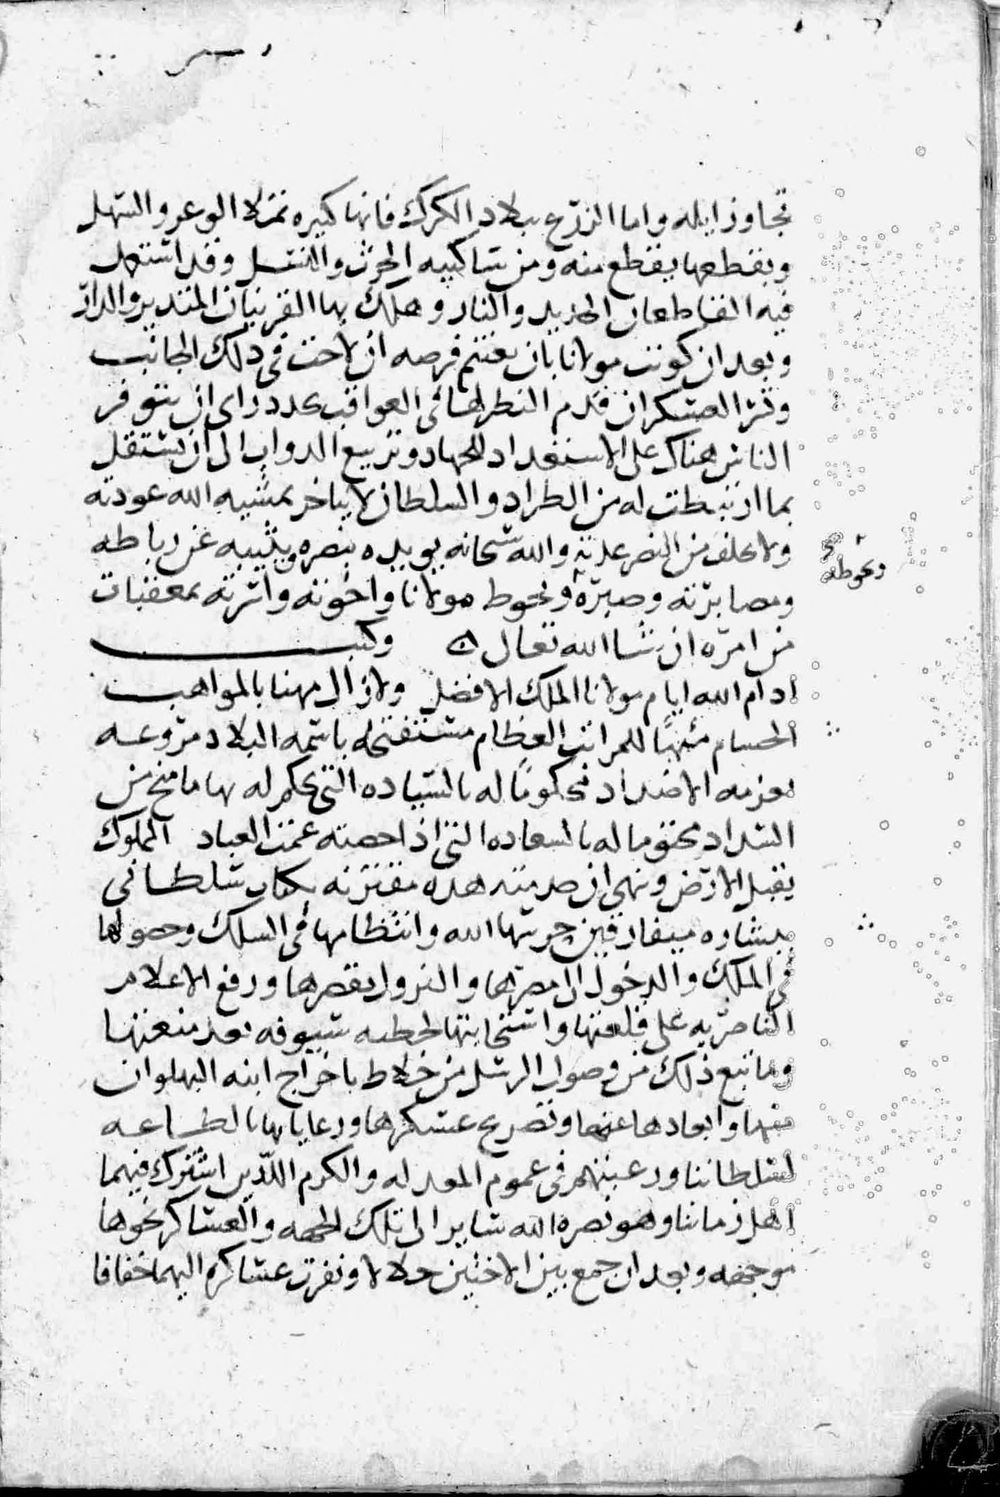 تجاوز ايله واما الزرع ببلاد الكرك فانها كبيره تملا الوعر والسهل
وبقطعها يقطع منه ومن ساكنيه الحرث والنسل وقد استعمل
فيه القاطعان الحديد والنار وهلك بها القرنيان الدار
وبعد ان كوتب مولانا بان يغتنم فرصه ان لاحت في ذلك الجانب
العسكر ان قدم النظر لها في العواقب راى ان يتوفر
الناس هناك على الاستعداد للجهاد وتربيع الدواب الى ان تستقل
بما ارتبطت له من الطراد والسلطان لا يتاخر بمشيه الله عودته
ولا من النصر عدته والله سبحانه يويده بنصره ويثيبه عن رباطه
ومصابرته وصبره ويحوط مولانا واخوته واسرته بمعقبات
وبحوطه صح
من امره ان شا الله تعالى ه وكتب
ادام الله ايام مولانا الملك الافضل ولا زال مهنا بالمواهب
الحسام للمراتب العظام مستفتحه باسمه البلاد مروعه
بعزمه الاضداد محكوما له بالسياده التي يحكم له بها ما منح من
السداد مختوما له بالسعاده التي اذا خصته عمت العباد المملوك
يقبل الارض وينهى ان خدمته هذه مقترنه بكتاب سلطاني
ببشاره ميافارقين حرسها الله وانتظامها في السلك وحصولها
في الملك والدخول الى مصرها والنزول بقصرها ورفع الاعلام
الناصريه على قلعتها واستجابتها لخطبه سيوفه بعد منعتها
وما تبع ذلك من وصول الرسل من خلاط باخراج ابنه البهلوان
منها وابعادها عنها وتصريح عسكرها ورعاياها بالطاعه
لسلطاننا ورغبتهم في عموم المعدله والكرم اللذين اشترك فيهما
اهل زماننا وهو نصره الله سايرا الى تلك الجهه والعساكر نحوها
موجهه وبعد ان جمع بين الاختين حلالا ونفرت عساكره اليهما خفافا